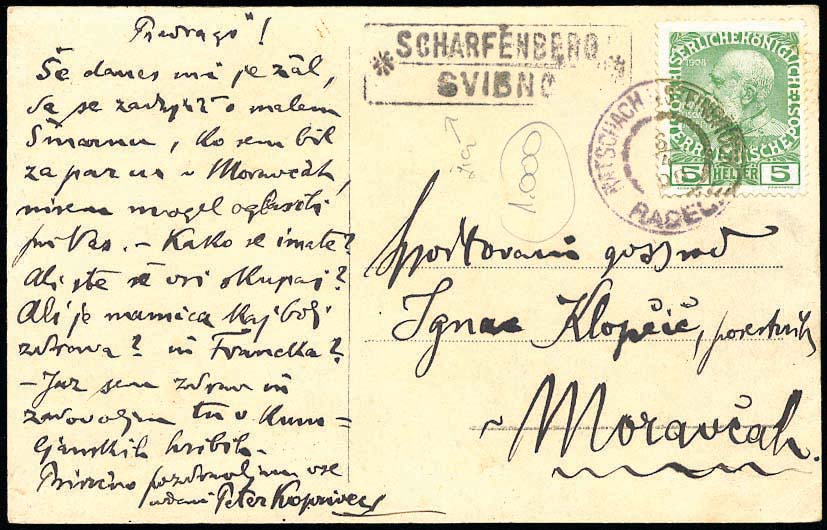 Predragi!
Še danes mi je žal,
da se zadnjič o malem
Šmarnu, ko sem bil
za par ur v Moravčah,
nisem mogel oglasiti
pri Vas. - Kako se imate?
Ali ste še vsi skupaj?
Ali je mamica kaj bolj
zdrava? in Francka?
- Jaz sem zdrav in
zadovoljen tu v Kum=
ljanskih hribih.
Prisrčno pozdravljam vse
udani Peter Koprivec
* SCHARFENBERG *
SVIBNO
1.000
RATSCHACH B. STEINBRÜCK
RADEČE
KAISERLICHE KÖNIGLICHE
ÖSTERREICHISCHE POST
1908
5 HELLER 5
Spoštovani gospod
Ignac Klopčič, posestnik
v Moravčah.